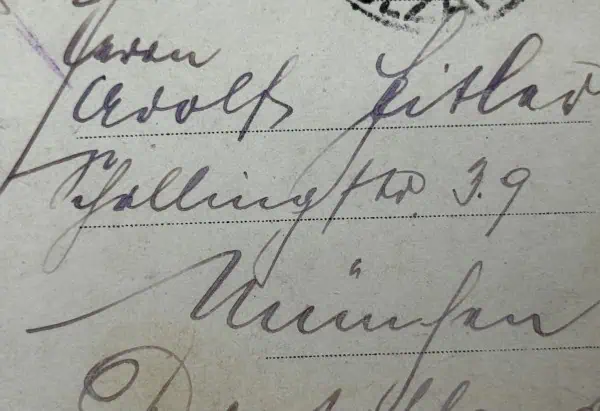 Herrn
Adolf Hitler
Schellingstr. 39
München